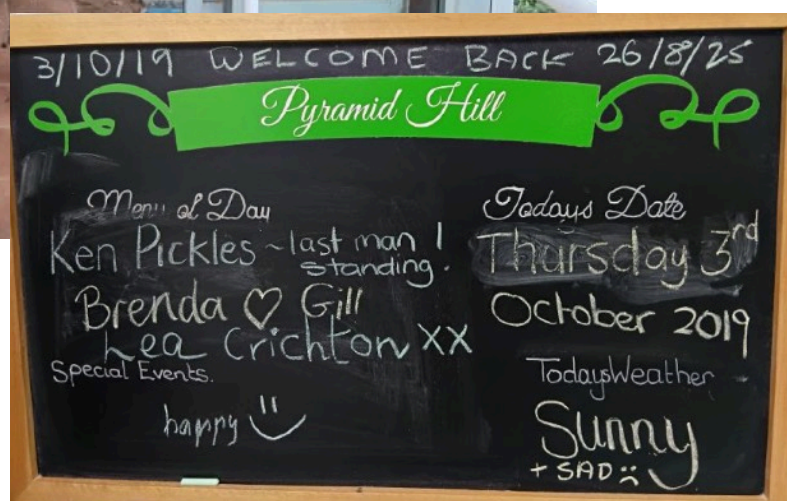 3/10/19 WELCOME BACK 26/8/25
Pyramid Hill
Menu of Day
Ken Pickles ~ last man !
standing.
Brenda ♡ Gill
Lea Crichton XX
Special Events.
happy
Todays Date
Thursday 3rd
October 2019
TodaysWeather
Sunny
+ SAD